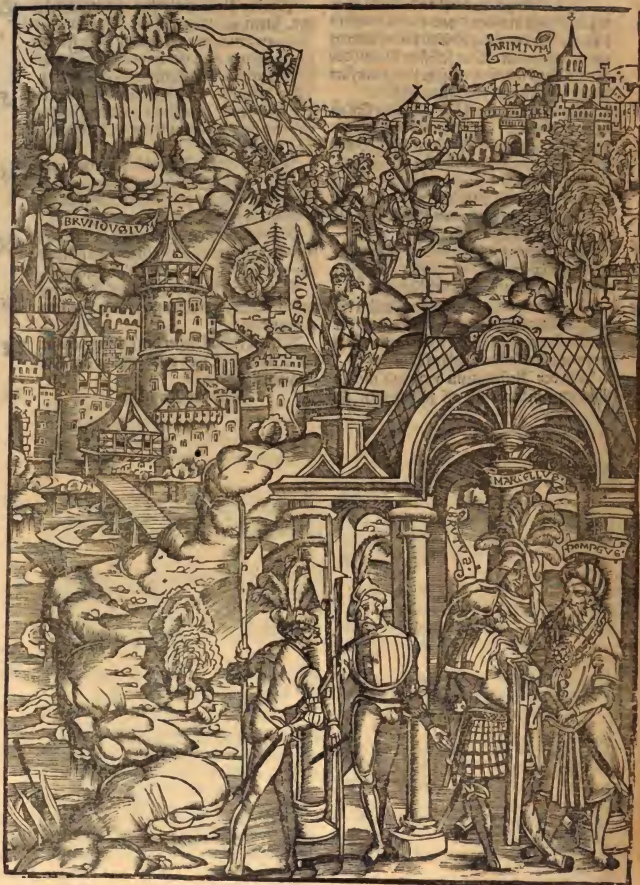 ARIMIVM
BRVNDVSIVM
MARCELLVS
BRVTVS
POMPEVS